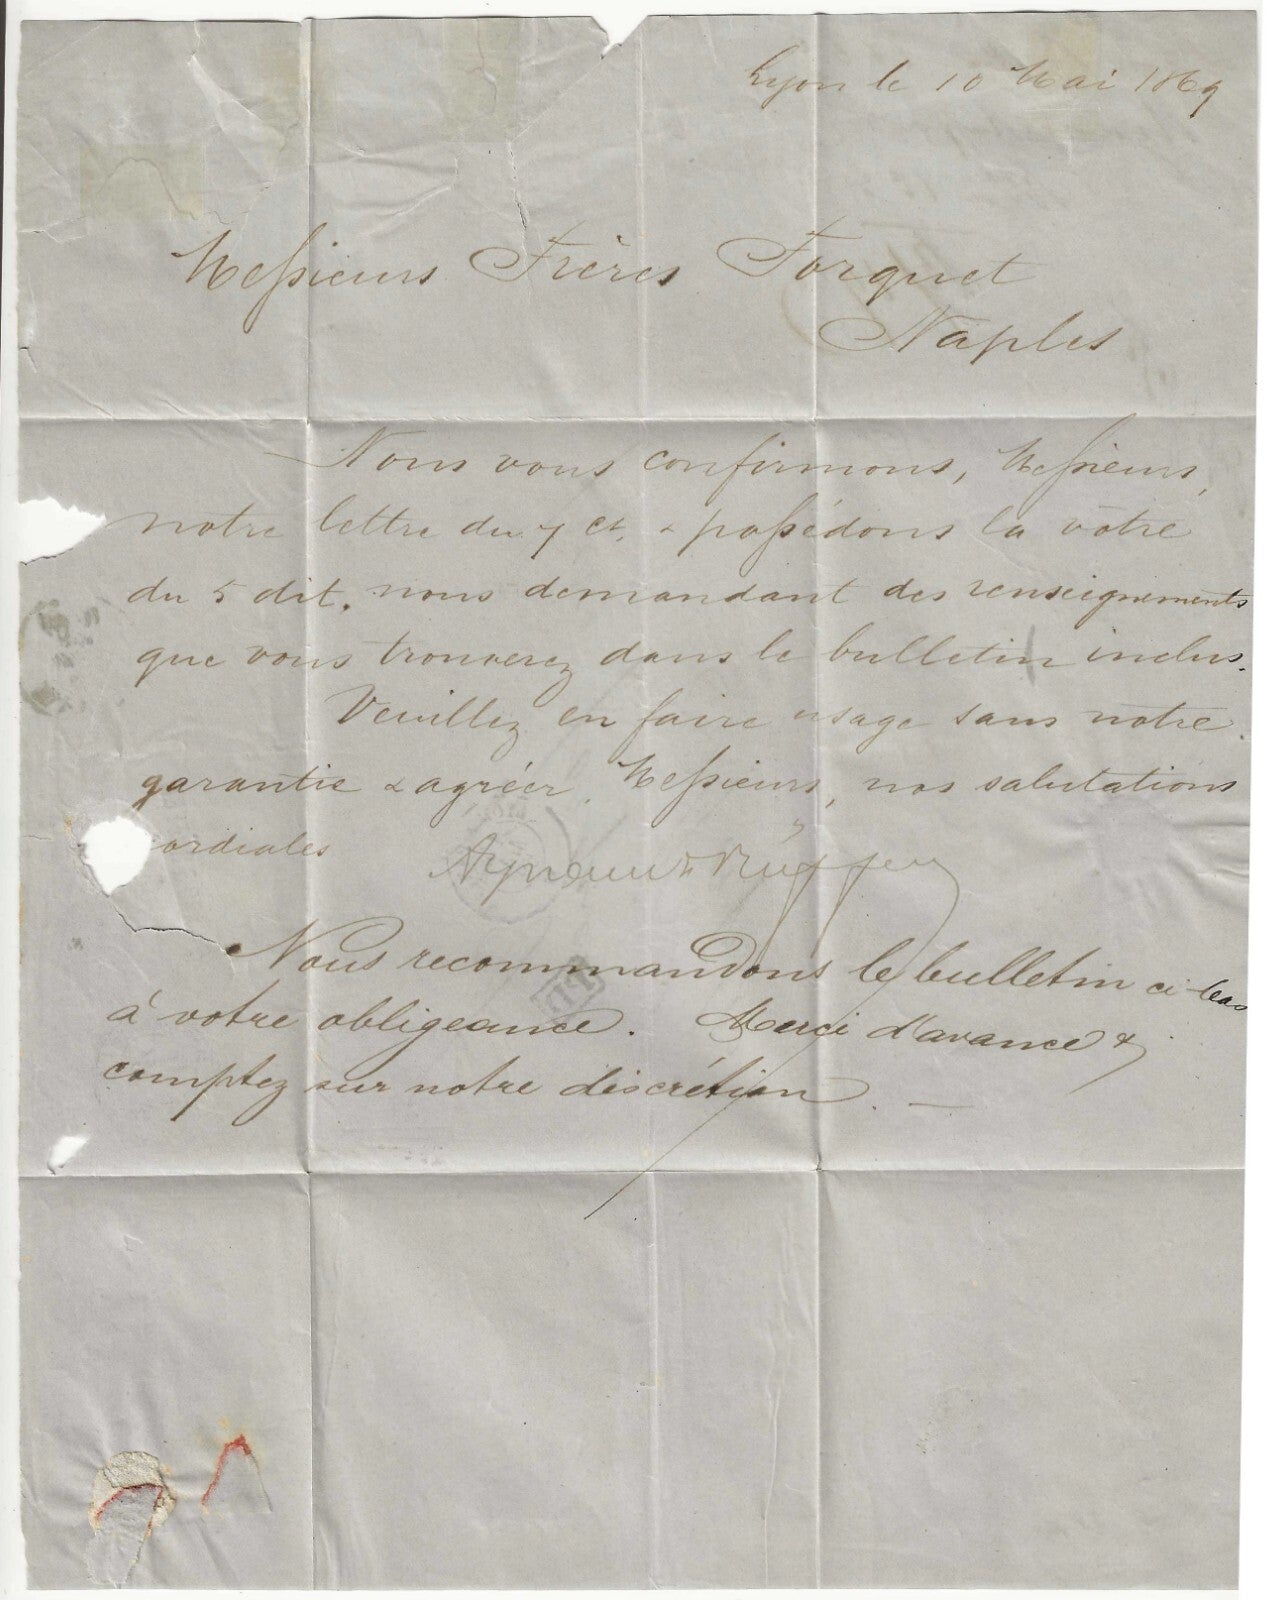 Lyon le 10 Mai 1869
Messieurs Frères Forquet
Naples
Nous vous confirmons, Messieurs,
notre lettre du 7 ct. & possédons la vôtre
du 5 dit. nous demandant des renseignements
que vous trouverez dans le bulletin inclus.
Veuillez en faire usage sans notre
garantie & agréer, Messieurs, nos salutations
ordiales
Nous recommandons le bulletin ci bas
à votre obligeance. Merci d'avance &
comptez sur notre discrétion. —
PD